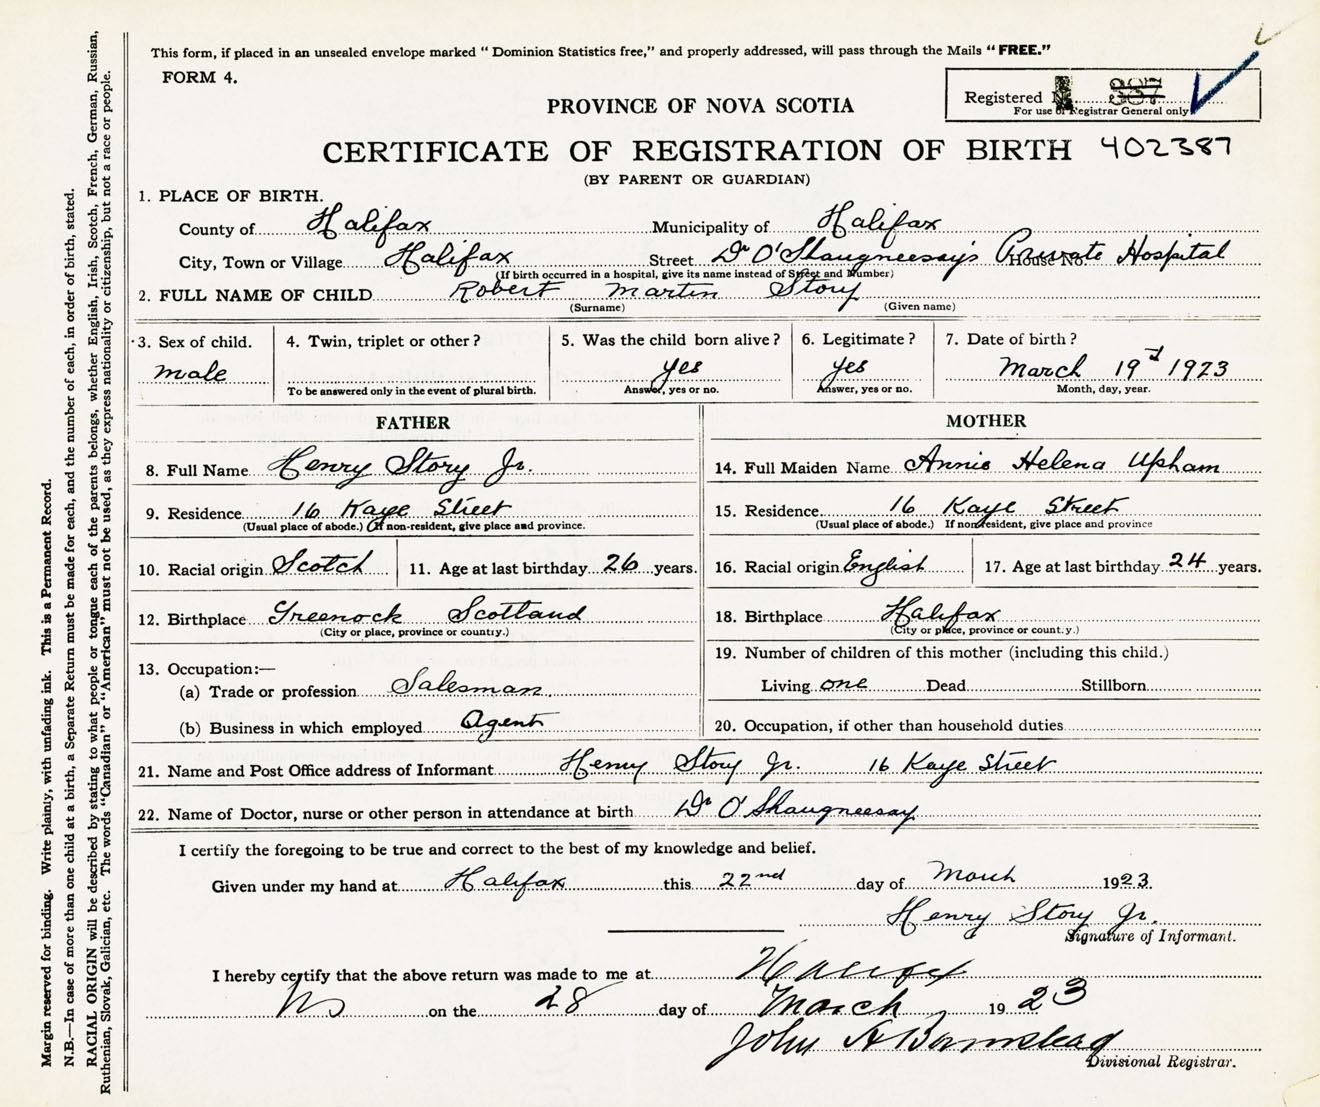 This form, if placed in an unsealed envelope marked "Dominion Statistics free," and properly addressed, will pass through the Mails "FREE."
FORM 4.
Registered 387
For use of Registrar General only
PROVINCE OF NOVA SCOTIA
CERTIFICATE OF REGISTRATION OF BIRTH 402387
(BY PARENT OR GUARDIAN)
1. PLACE OF BIRTH.
County of Halifax Municipality of Halifax
City, Town or Village Halifax Street Dr O'Shaugneesay's Private Hospital House No
(If birth occurred in a hospital, give its name instead of Street and Number)
2. FULL NAME OF CHILD Robert Martin Story
(Surname) (Given name)
3. Sex of child. 4. Twin, triplet or other? 5. Was the child born alive? 6. Legitimate? 7. Date of birth?
male yes yes March 19th 1923
To be answered only in the event of plural birth. Answer, yes or no. Answer, yes or no. Month, day, year.
FATHER MOTHER
8. Full Name Henry Story Jr. 14. Full Maiden Name Annie Helena Upham
9. Residence 16 Kaye Street 15. Residence 16 Kaye Street
(Usual place of abode.) (If non-resident, give place and province. (Usual place of abode.) If non-resident, give place and province
10. Racial origin Scotch 11. Age at last birthday 26 years. 16. Racial origin English 17. Age at last birthday 24 years.
12. Birthplace Greenock Scotland 18. Birthplace Halifax
(City or place, province or country.) (City or place, province or country.)
13. Occupation:— 19. Number of children of this mother (including this child.)
(a) Trade or profession Salesman. Living one Dead Stillborn
(b) Business in which employed Agent 20. Occupation, if other than household duties
21. Name and Post Office address of Informant Henry Story Jr. 16 Kaye Street
22. Name of Doctor, nurse or other person in attendance at birth Dr O'Shaugneesay
I certify the foregoing to be true and correct to the best of my knowledge and belief.
Given under my hand at Halifax this 22nd day of March 1923.
Henry Story Jr.
Signature of Informant.
I hereby certify that the above return was made to me at Halifax
NS on the 28 day of March 1923
John A Barnstead
Divisional Registrar.
Margin reserved for binding. Write plainly, with unfading ink. This is a Permanent Record.
N.B.—In case of more than one child at a birth, a Separate Return must be made for each, and the number of each, in order of birth, stated.
RACIAL ORIGIN will be described by stating to what people or tongue each of the parents belongs, whether English, Irish, Scotch, French, German, Russian,
Ruthenian, Slovak, Galician, etc. The words "Canadian" or "American" must not be used, as they express nationality or citizenship, but not a race or people.